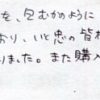 を、包むかのように
おり、いと忠の皆様
りました。また購入